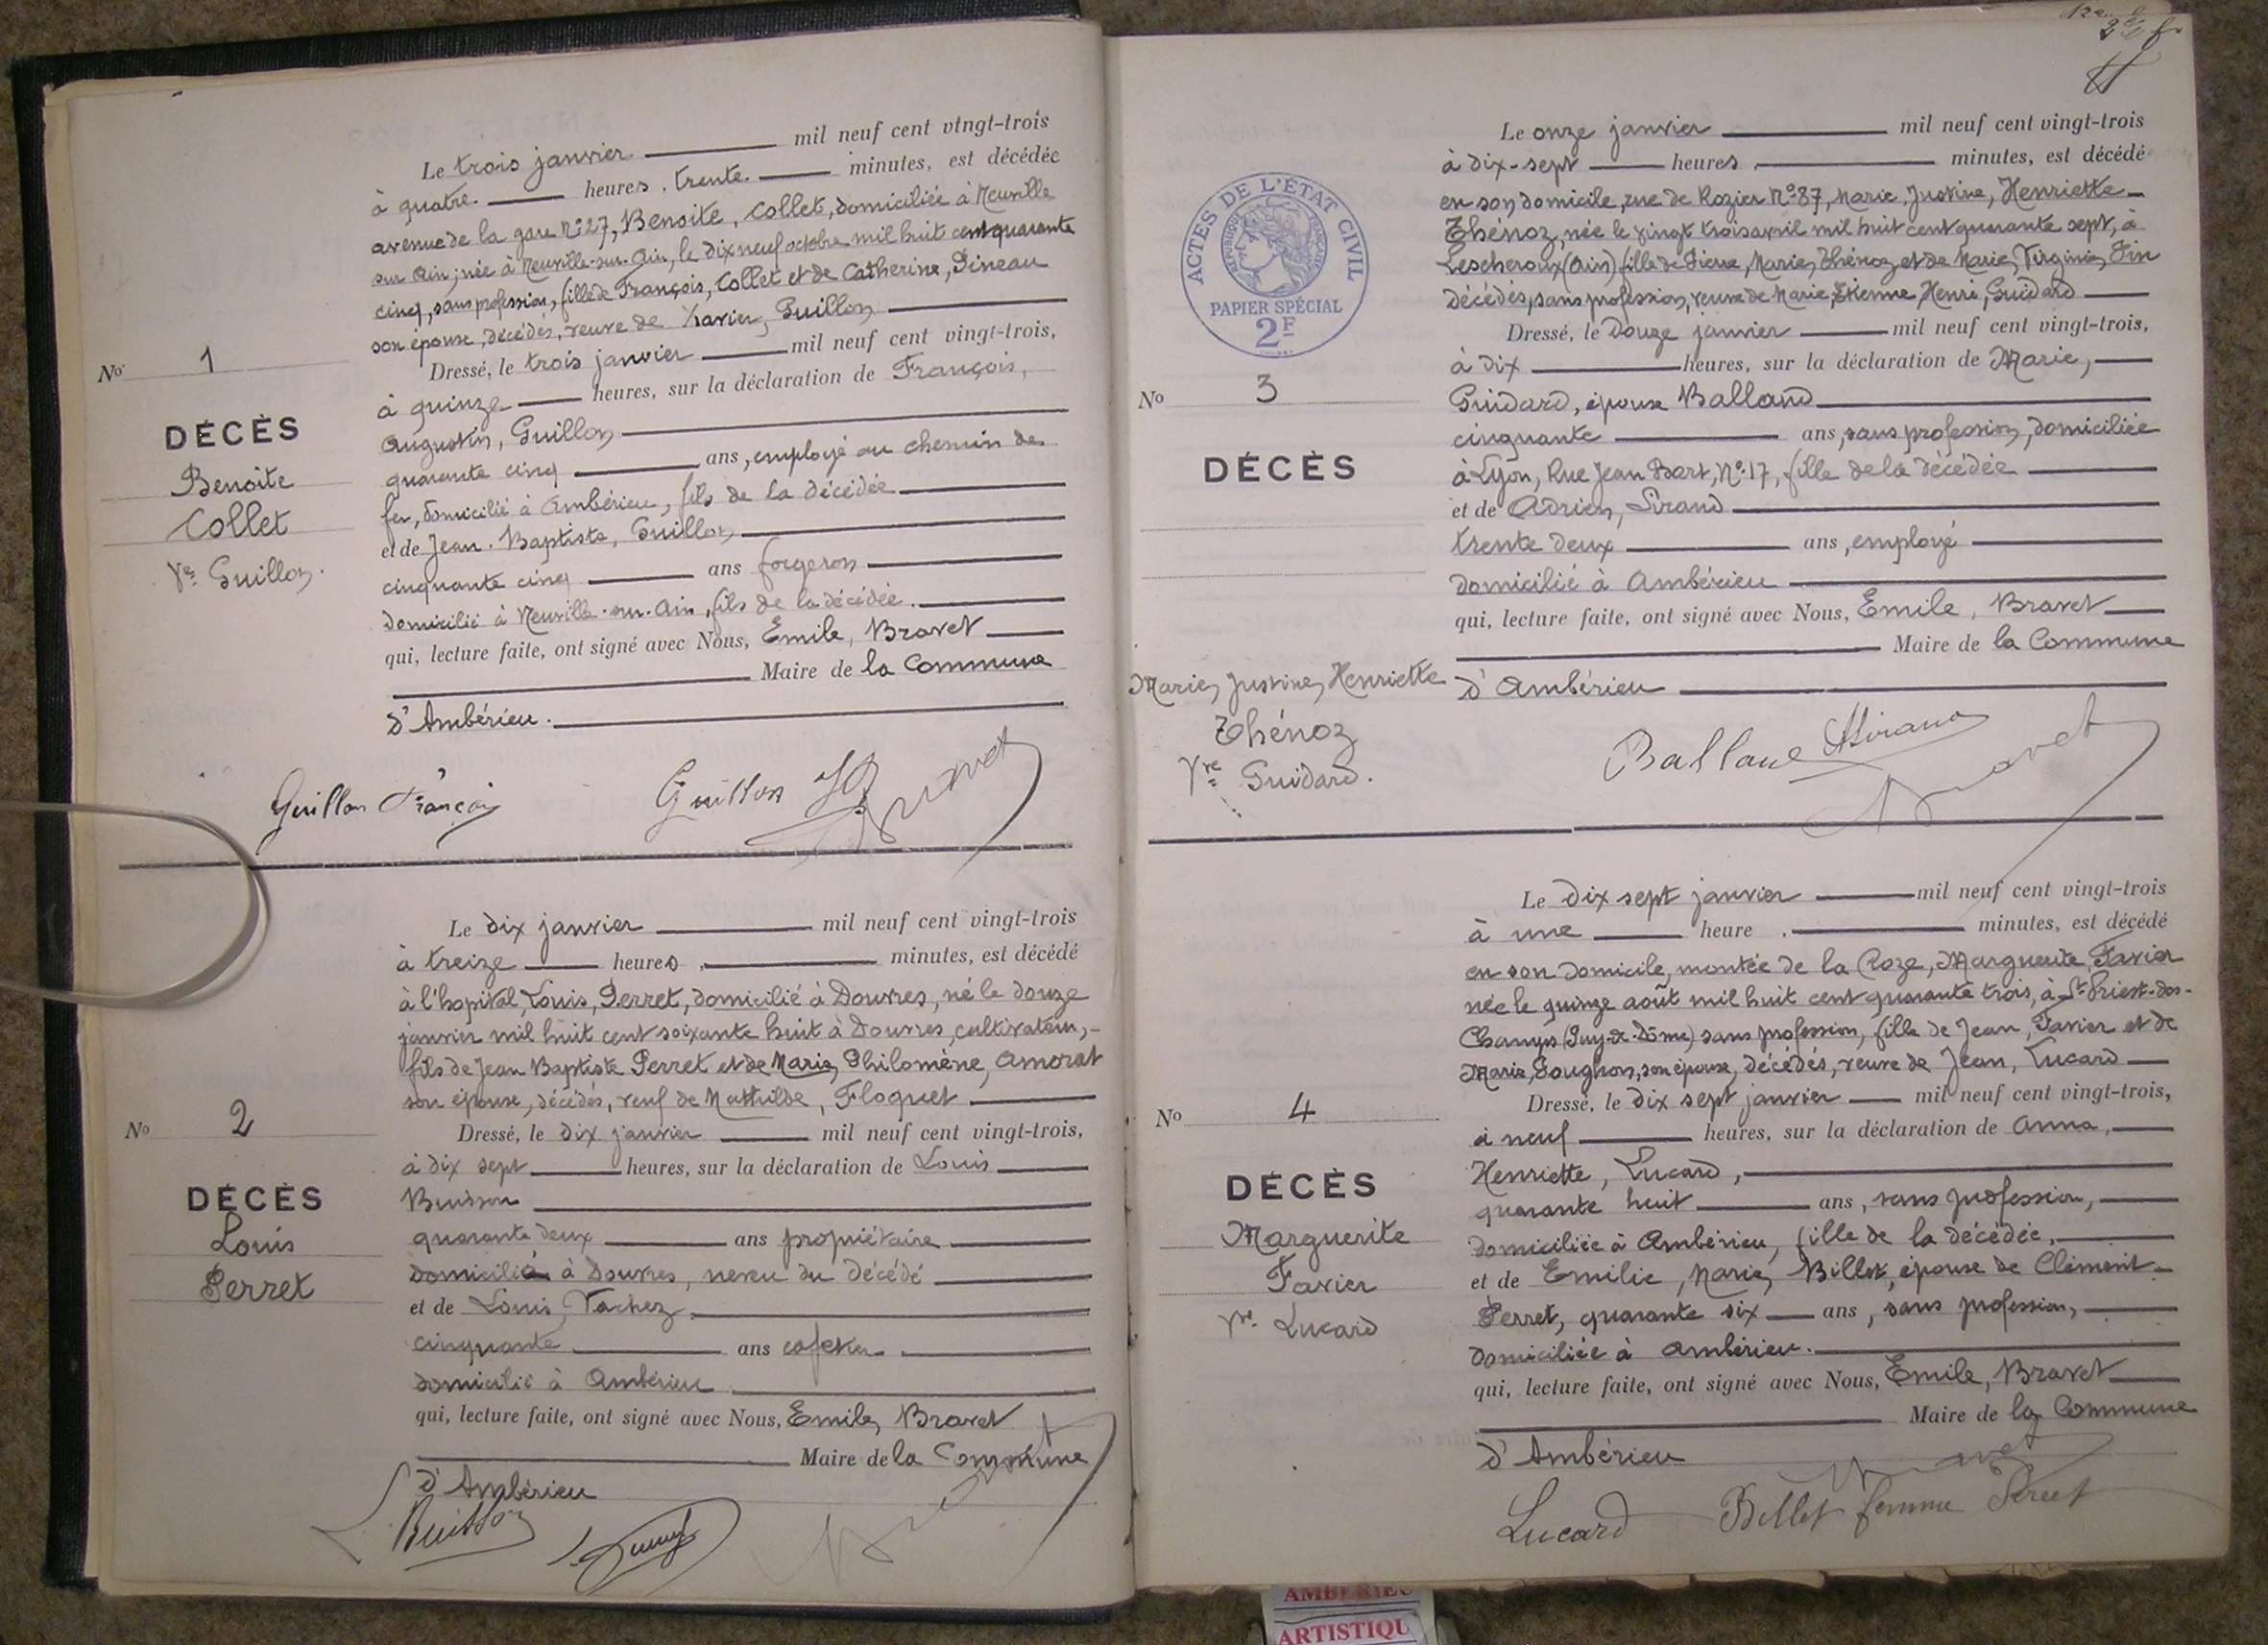 Le trois janvier mil neuf cent vingt-trois
à quatre heures, trente minutes, est décédée
avenue de la gare N° 27, Benoite, Collet, domiciliée à Neuville
sur Ain; née à Neuville-sur-Ain, le dix neuf octobre mil huit cent quarante
cinq, sans profession, fille de François, Collet et de Catherine, Pineau
son épouse, décédés, veuve de Xavier, Guillon
Dressé, le trois janvier mil neuf cent vingt-trois,
à quinze heures, sur la déclaration de François,
Augustin, Guillon
quarante cinq ans, employé au chemin de
fer, domicilié à Ambérieu, fils de la décédée
et de Jean-Baptiste, Guillon
cinquante cinq ans forgeron
domicilié à Neuville-sur-Ain, fils de la décédée.
qui, lecture faite, ont signé avec Nous, Emile, Bravet
Maire de la Commune
d'Ambérieu.
No 1
DÉCÈS
Benoite
Collet
Ve Guillon.
Guillon François
Guillon JB
Bravet
Le dix janvier mil neuf cent vingt-trois
à treize heures, minutes, est décédé
à l'hopital, Louis, Perret, domicilié à Douvres, né le douze
janvier mil huit cent soixante huit à Douvres, cultivateur,
fils de Jean Baptiste Perret et de Marie, Philomène, Amorat
son épouse, décédés, veuf de Mathilde, Floquet
Dressé, le dix janvier mil neuf cent vingt-trois,
à dix sept heures, sur la déclaration de Louis
Buisson
quarante deux ans propriétaire
domicilié à Douvres, neveu du décédé
et de Louis, Vachez
cinquante ans cafetier
domicilié à Ambérieu
qui, lecture faite, ont signé avec Nous, Emile, Bravet
Maire de la Commune
d'Ambérieu
No 2
DÉCÈS
Louis
Perret
Buisson
Bravet
ACTES DE L'ÉTAT CIVIL
RÉPUBLIQUE FRANÇAISE
PAPIER SPÉCIAL
2F
Le onze janvier mil neuf cent vingt-trois
à dix-sept heures, minutes, est décédé
en son domicile, rue de Rozier N° 87, Marie, Justine, Henriette
Thénoz, née le vingt trois avril mil huit cent quarante sept, à
Lescheroux (Ain) fille de Pierre, Marie, Thénoz et de Marie, Virginie, Pin
décédés, sans profession, veuve de Marie, Etienne, Henri, Guidard
Dressé, le douze janvier mil neuf cent vingt-trois,
à dix heures, sur la déclaration de Marie,
Guidard, épouse Balland
cinquante ans, sans profession, domiciliée
à Lyon, Rue Jean Bart, N° 17, fille de la décédée
et de Adrien, Sirand
trente deux ans, employé
domicilié à Ambérieu
qui, lecture faite, ont signé avec Nous, Emile, Bravet
Maire de la Commune
d'Ambérieu
No 3
DÉCÈS
Marie, Justine, Henriette
Thénoz
Vve Guidard.
Balland
ASirand
Bravet
Le dix sept janvier mil neuf cent vingt-trois
à une heure, minutes, est décédé
en son domicile, montée de la Roze, Marguerite, Favier
née le quinze août mil huit cent quarante trois, à St-Priest-des-
Champs (Puy-de-Dôme) sans profession, fille de Jean, Favier et de
Marie, Foughon, son épouse, décédés, veuve de Jean, Lucard
Dressé, le dix sept janvier mil neuf cent vingt-trois,
à neuf heures, sur la déclaration de Anna,
Henriette, Lucard,
quarante huit ans, sans profession,
domiciliée à Ambérieu, fille de la décédée,
et de Emilie, Marie, Billet, épouse de Clément
Perret, quarante six ans, sans profession,
domiciliée à Ambérieu.
qui, lecture faite, ont signé avec Nous, Emile, Bravet
Maire de la Commune
d'Ambérieu
No 4
DÉCÈS
Marguerite
Favier
Ve Lucard
Bravet
Lucard
Billet femme Perret
AMBERIEU
ARTISTIQU